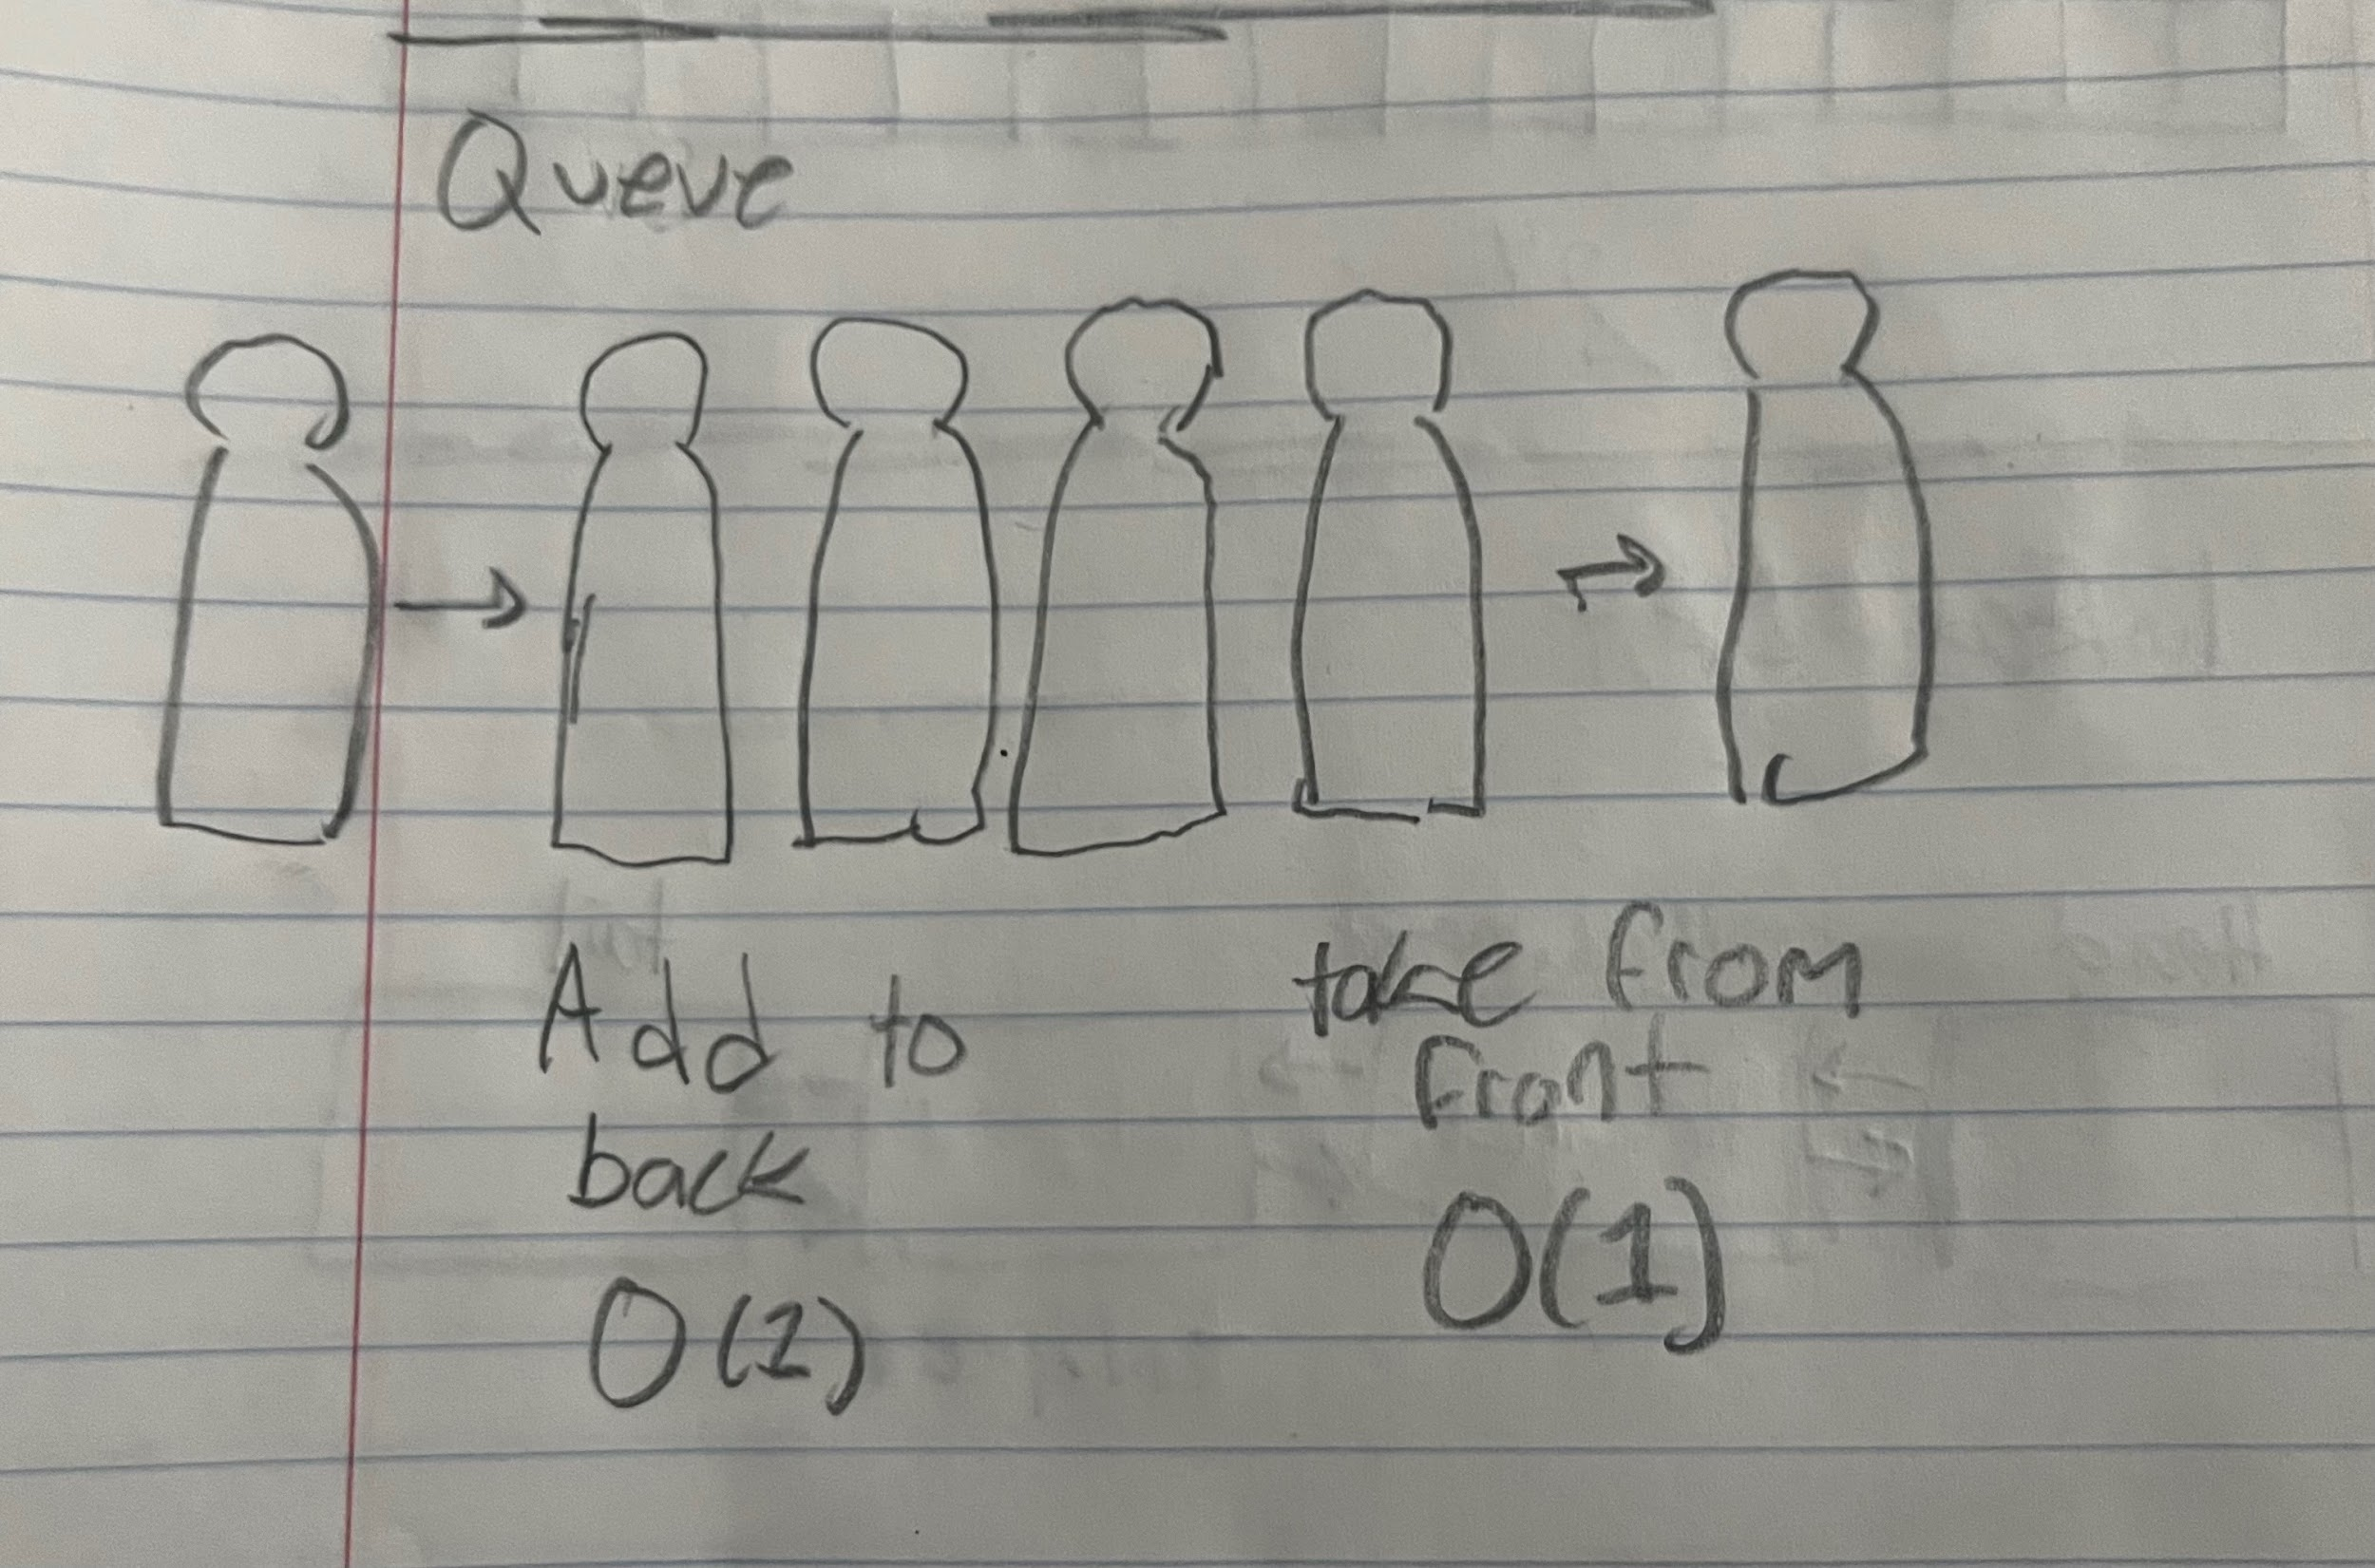 Queue
Add to
back
O(1)
take from
front
O(1)